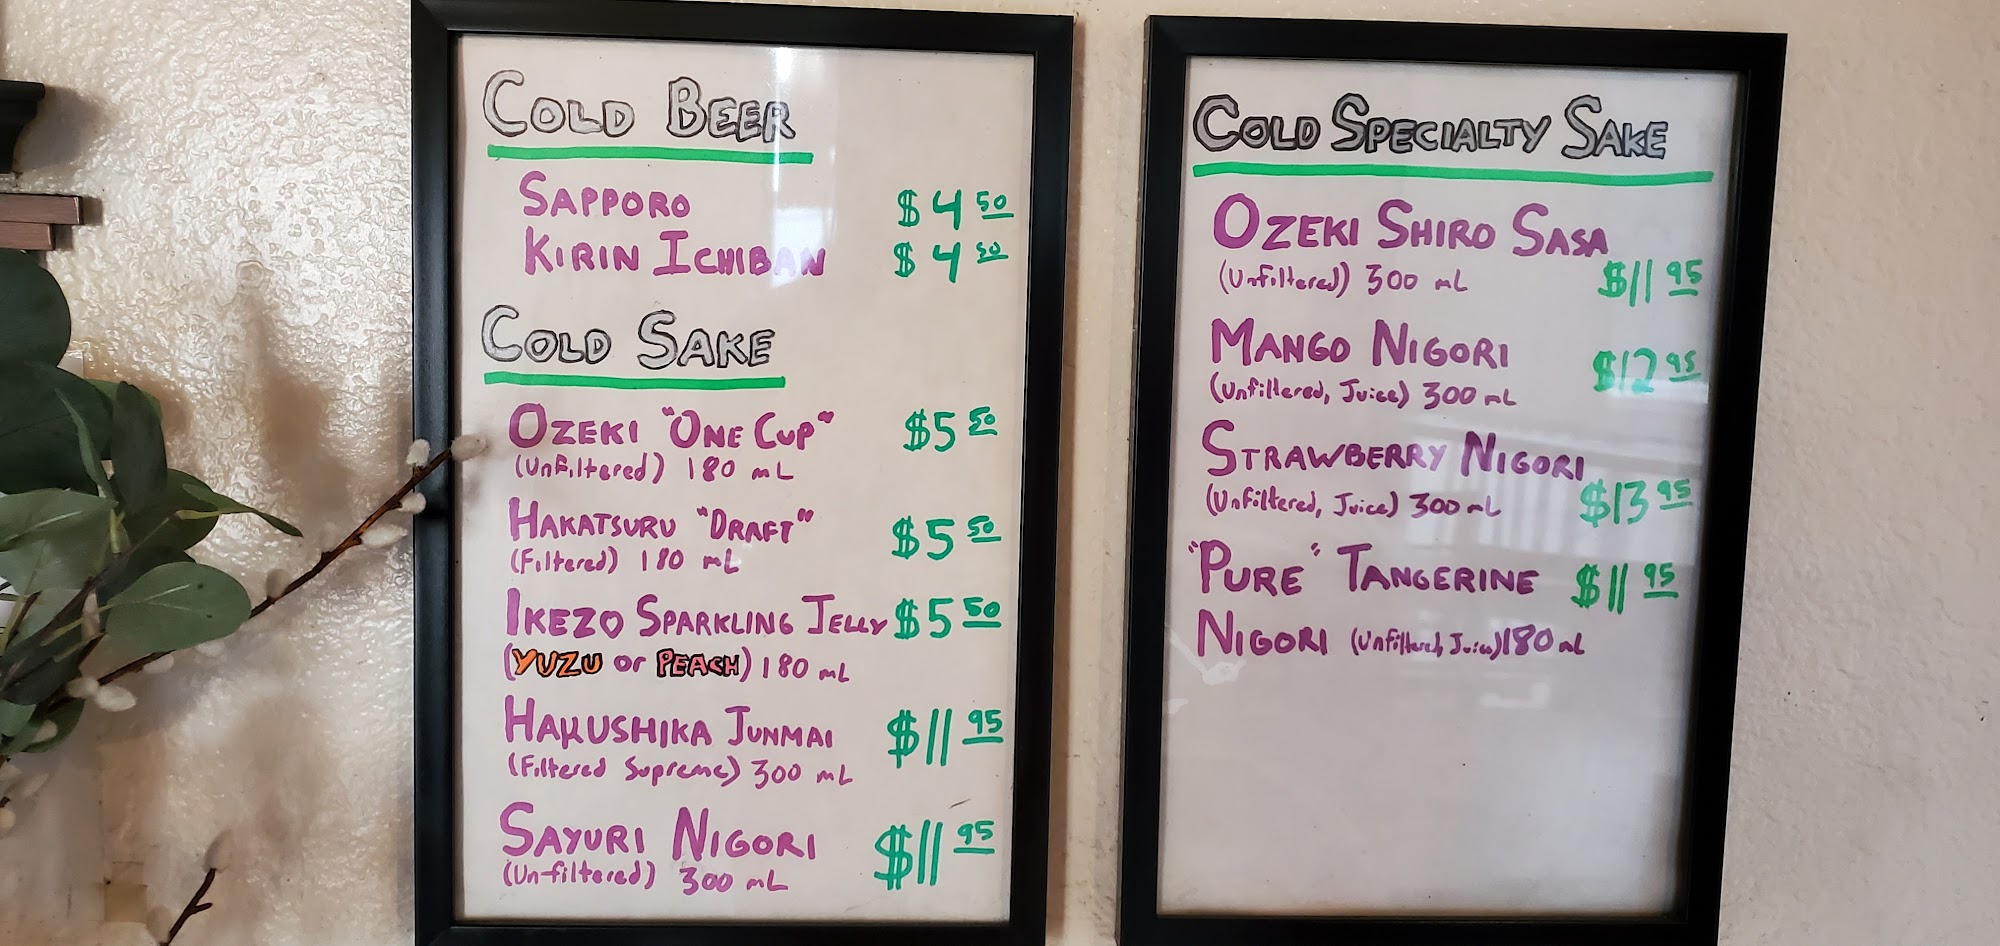 COLD BEER
SAPPORO $4 50
KIRIN ICHIBAN $4 50
COLD SAKE
OZEKI "ONE CUP" $5 50
(Unfiltered) 180 mL
HAKATSURU "DRAFT" $5 50
(Filtered) 180 mL
IKEZO SPARKLING JELLY $5 50
(YUZU or PEACH) 180 mL
HAKUSHIKA JUNMAI $11 95
(Filtered Supreme) 300 mL
SAYURI NIGORI $11 95
(Un-filtered) 300 mL
COLD SPECIALTY SAKE
OZEKI SHIRO SASA
(Unfiltered) 300 mL $11 95
MANGO NIGORI $12 95
(Unfiltered, Juice) 300 mL
STRAWBERRY NIGORI
(Unfiltered, Juice) 300 mL $13 95
"PURE" TANGERINE $11 95
NIGORI (Unfiltered, Juice) 180 mL